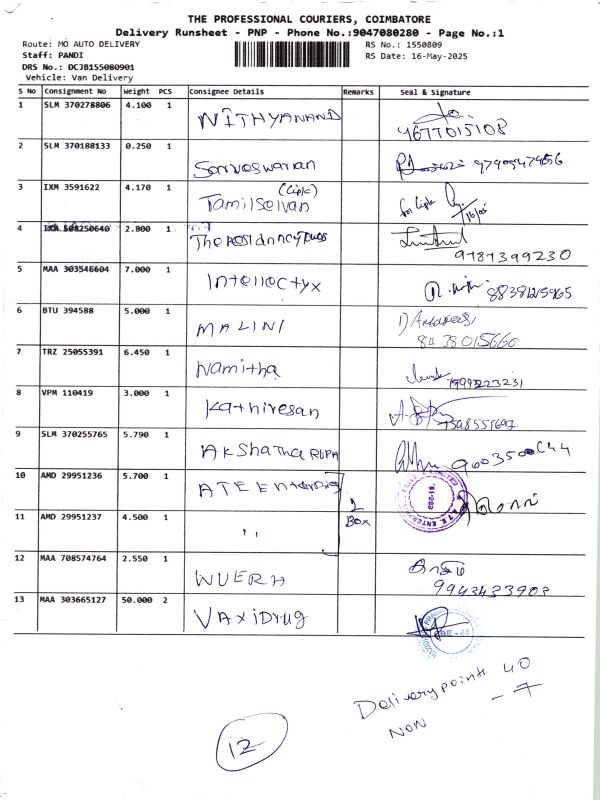 THE PROFESSIONAL COURIERS, COIMBATORE
Delivery Runsheet - PNP - Phone No.:9047080280 - Page No.:1
Route: MO AUTO DELIVERY RS No.: 1550809
Staff: PANDI RS Date: 16-May-2025
DRS No.: DCJB155080901
Vehicle: Van Delivery
S No Consignment No Weight PCS Consignee Details Remarks Seal & Signature
1 SLM 370278806 4.100 1 NITHYANAND 4677015108
2 SLM 370188133 0.250 1 Sarveswaran
3 IXM 3591622 4.170 1 Tamilselvan (Cipla) for Cipla 16/05
4 508250640 2.800 1 9787399230
5 MAA 303546604 7.000 1 Intellectyx
6 BTU 394588 5.000 1 MALINI 8438015660
7 TRZ 25055391 6.450 1 Namitha
8 VPM 110419 3.000 1 Kathiresan
9 SLM 370255765 5.790 1 AKShatha RUPA
10 AMD 29951236 5.700 1 ATE Enterprise 2 Box
11 AMD 29951237 4.500 1 ,,
12 MAA 708574764 2.550 1 WUERH 9943433903
13 MAA 303665127 50.000 2 VAxiDrug
Delivery points 40
NON - 7
12